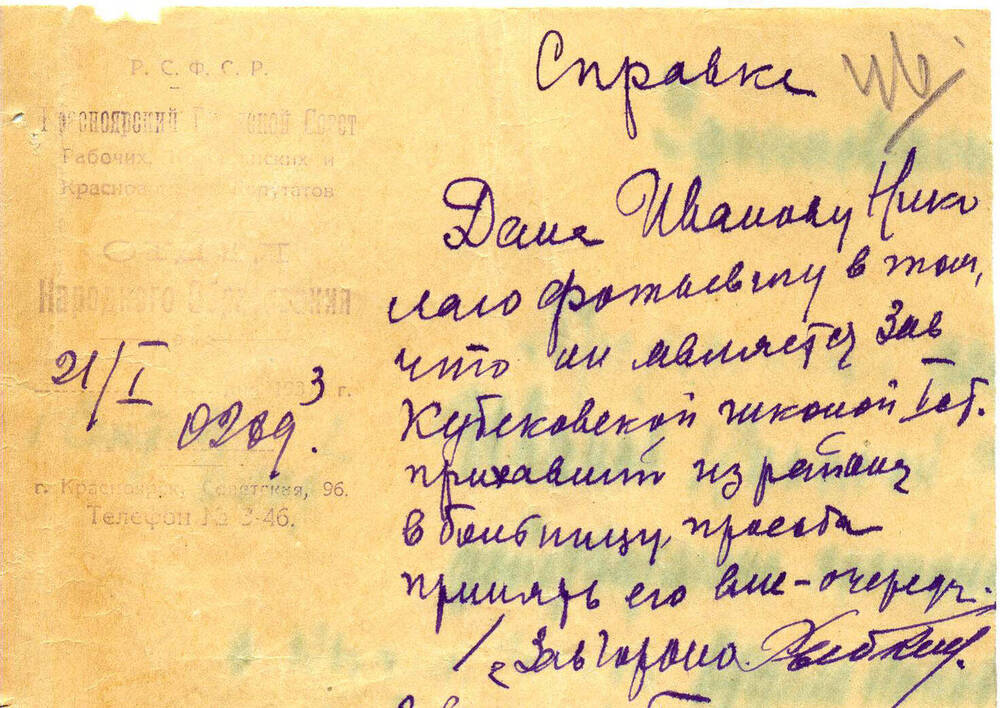 Р. С. Ф. С. Р.
Красноярский Городской Совет
Рабочих, Крестьянских и
Красноарм. Депутатов
ОТДЕЛ
Народного Образования
21/I 1933 г.
0209.
г. Красноярск, Советская, 96.
Телефон № 3-46.
Справка
Дана Иванову Нико
лаю Фотьевичу в том,
что он является Зав
Кубековской школой I ст.
приехавший из района
в больницу, просьба
принять его вне-очередь.
Завгороно